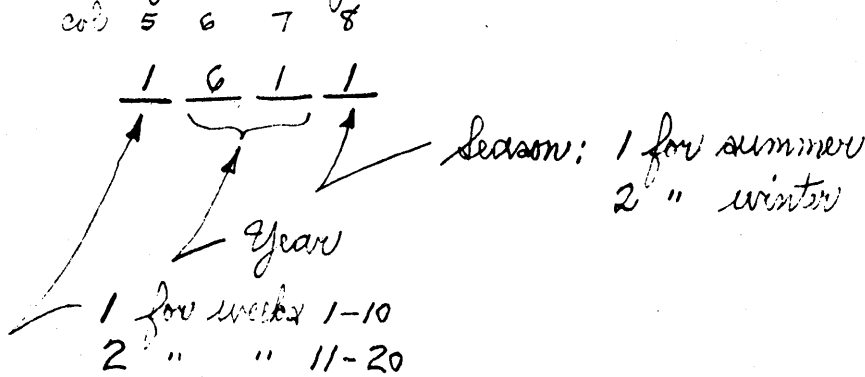 col 5 6 7 8
1 6 1 1
Season: 1 for summer
2 " winter
Year
1 for weeks 1-10
2 " " 11-20